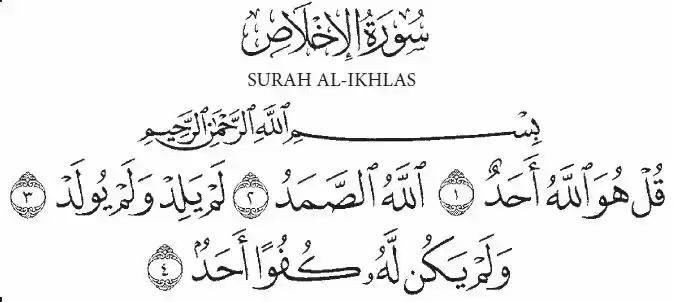 سُورَةُ الإِخْلَاصِ
SURAH AL-IKHLAS
بِسْمِ اللَّهِ الرَّحْمَٰنِ الرَّحِيمِ
قُلْ هُوَ اللَّهُ أَحَدٌ ١ اللَّهُ الصَّمَدُ ٢ لَمْ يَلِدْ وَلَمْ يُولَدْ ٣
وَلَمْ يَكُن لَّهُ كُفُوًا أَحَدٌ ٤